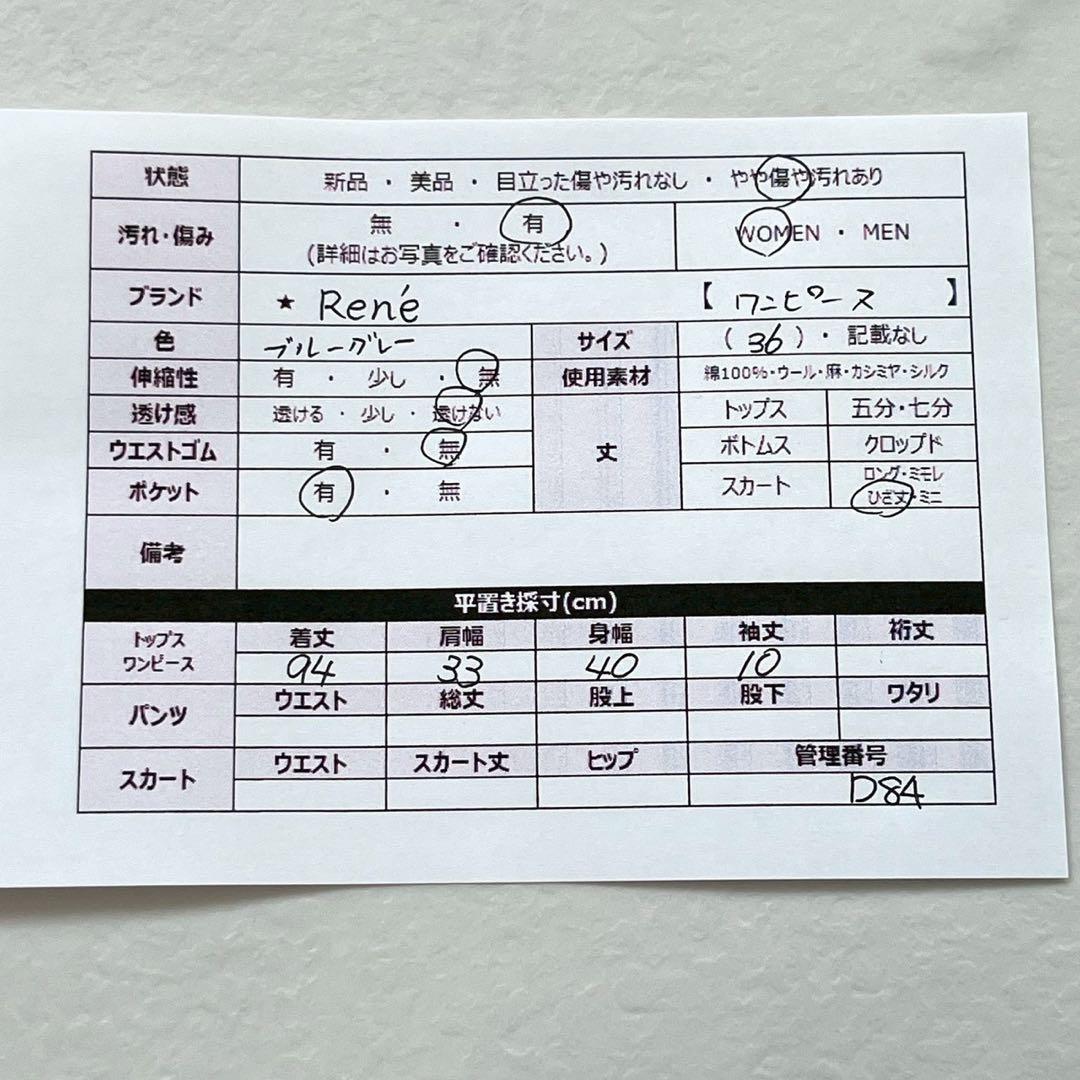 状態 新品 ・ 美品 ・ 目立った傷や汚れなし ・ やや傷や汚れあり
汚れ・傷み 無 ・ 有 WOMEN ・ MEN
(詳細はお写真をご確認ください。)
ブランド ★ René 【 ワンピース 】
色 ブルーグレー サイズ ( 36 ) ・ 記載なし
伸縮性 有 ・ 少し ・ 無 使用素材 綿100%・ウール・麻・カシミヤ・シルク
透け感 透ける ・ 少し ・ 透けない 丈 トップス 五分・七分
ウエストゴム 有 ・ 無 ボトムス クロップド
ポケット 有 ・ 無 スカート ロング・ミモレ
ひざ丈・ミニ
備考
平置き採寸(cm)
トップス ワンピース 着丈 肩幅 身幅 袖丈 裄丈
94 33 40 10
パンツ ウエスト 総丈 股上 股下 ワタリ
スカート ウエスト スカート丈 ヒップ 管理番号
D84